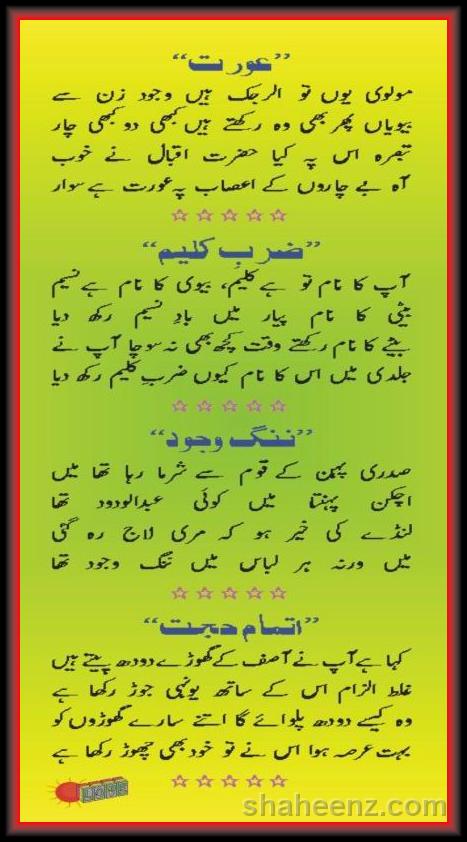 ”عورت“
مولوی یوں تو الرجک ہیں وجود زن سے
بیویاں پھر بھی وہ رکھتے ہیں کبھی دو کبھی چار
تبصرہ اس پہ کیا حضرت اقبال نے خوب
آہ بے چاروں کے اعصاب پہ عورت ہے سوار
”ضربِ کلیم“
آپ کا نام تو ہے کلیم، بیوی کا نام ہے نسیم
بیٹی کا نام پیار میں بادِ نسیم رکھ دیا
بیٹے کا نام رکھتے وقت کچھ بھی نہ سوچا آپ نے
جلدی میں اس کا نام کیوں ضربِ کلیم رکھ دیا
”ننگ وجود“
صدری پہن کے قوم سے شرما رہا تھا میں
اچکن پہنتا میں کوئی عبدالودود تھا
لنڈے کی خیر ہو کہ مری لاج رہ گئی
میں ورنہ ہر لباس میں ننگ وجود تھا
”اتمام حجت“
کہا ہے آپ نے آصف کے گھوڑے دودھ پیتے ہیں
غلط الزام اس کے ساتھ یونہی جوڑ رکھا ہے
وہ کیسے دودھ پلوائے گا اتنے سارے گھوڑوں کو
بہت عرصہ ہوا اس نے تو خود بھی چھوڑ رکھا ہے
shaheenz.com